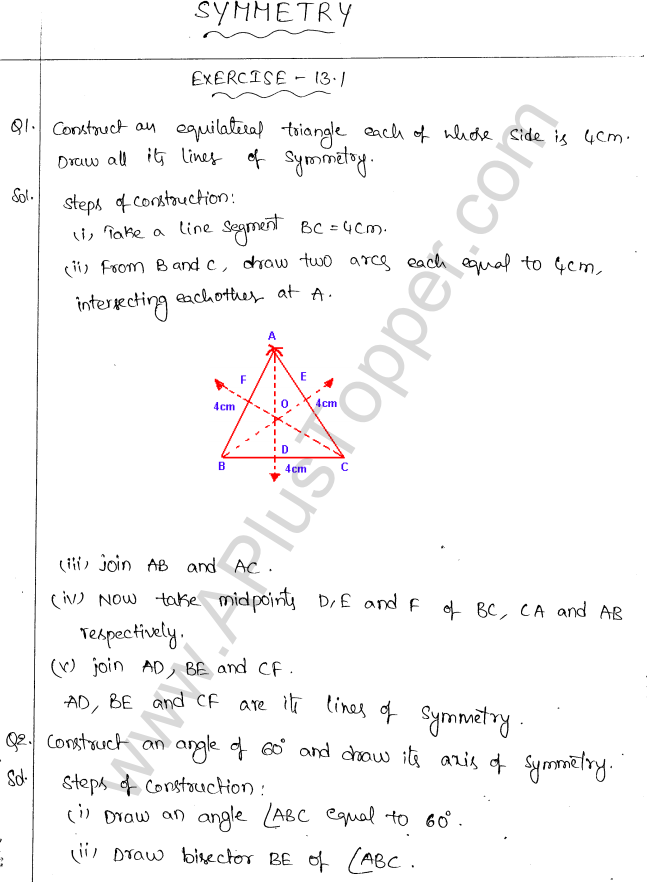 SYMMETRY
EXERCISE - 13.1
Q1. Construct an equilateral triangle each of whose side is 4cm.
Draw all its lines of symmetry.
Sol. Steps of construction:
(i) Take a line segment BC = 4cm.
(ii) From B and C, draw two arcs each equal to 4cm,
intersecting eachother at A.
A
F E
4cm O 4cm
D
B 4cm C
(iii) join AB and AC.
(iv) Now take midpoints D, E and F of BC, CA and AB
respectively.
(v) join AD, BE and CF.
AD, BE and CF are its lines of symmetry.
Q2. Construct an angle of 60° and draw its axis of symmetry.
Sol. Steps of construction:
(i) Draw an angle ∠ABC equal to 60°.
(ii) Draw bisector BE of ∠ABC.
www.APlusTopper.com